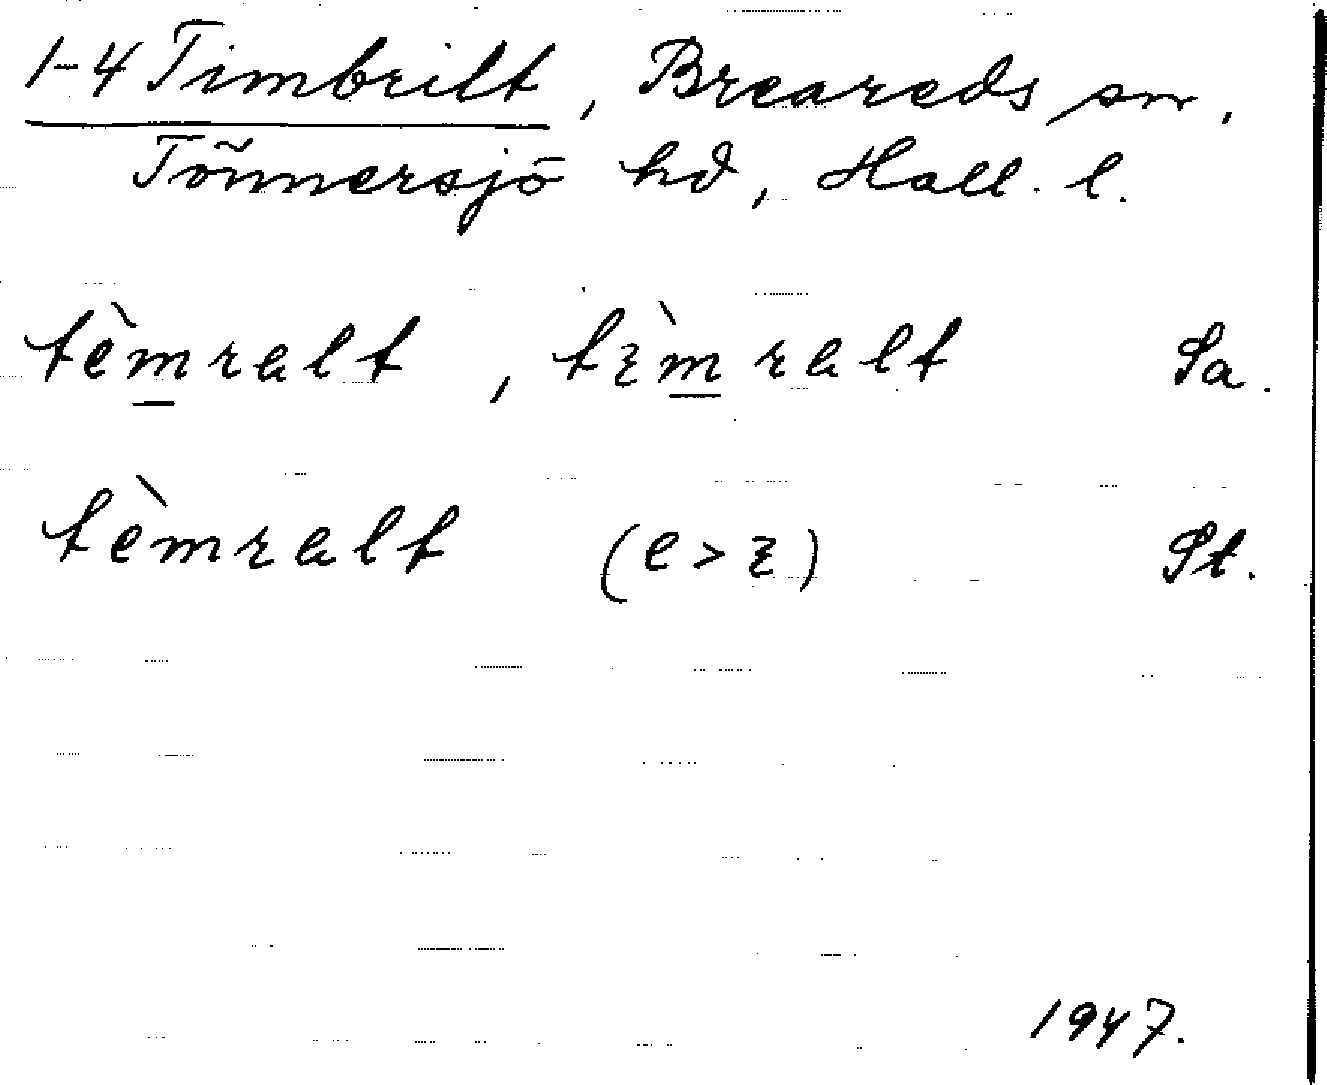 1-4 Timbrilt, Breareds sn,
Tönnersjö hd, Hall. l.
tèm̲ralt, tɛ̀m̲ralt Sa.
tèmralt (e > ɛ) St.
1947.